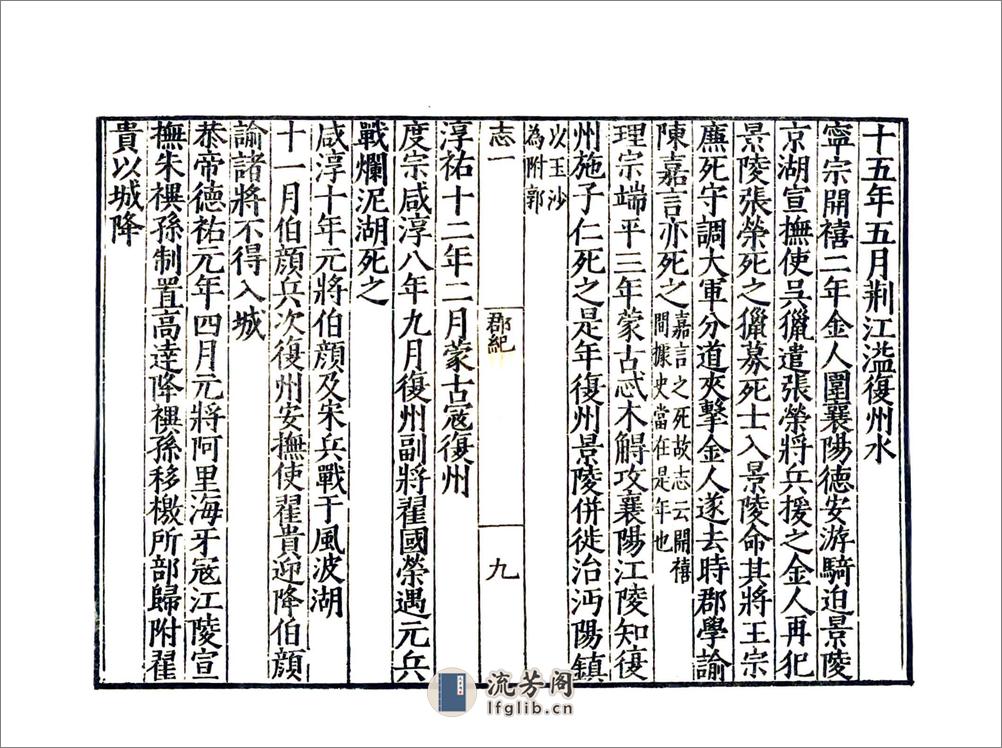 十五年五月荆江溢復州水
寧宗開禧二年金人圍襄陽德安游騎迫景陵
京湖宣撫使吳獵遣張榮將兵援之金人再犯
景陵張榮死之獵募死士入景陵命其將王宗
廉死守調大軍分道夾擊金人遂去時郡學諭
陳嘉言亦死之嘉言之死故志云開禧
間據史當在是年也
理宗端平三年蒙古忒木䚟攻襄陽江陵知復
州施子仁死之是年復州景陵併徙治沔陽鎮
以玉沙
為附郭
志一
郡紀
九
淳祐十二年二月蒙古寇復州
度宗咸淳八年九月復州副將翟國榮遇元兵
戰爛泥湖死之
咸淳十年元將伯顔及宋兵戰于風波湖
十一月伯顔兵次復州安撫使翟貴迎降伯顔
諭諸將不得入城
恭帝德祐元年四月元將阿里海牙寇江陵宣
撫朱禩孫制置高達降禩孫移檄所部歸附翟
貴以城降
流芳阁
lfglib.cn